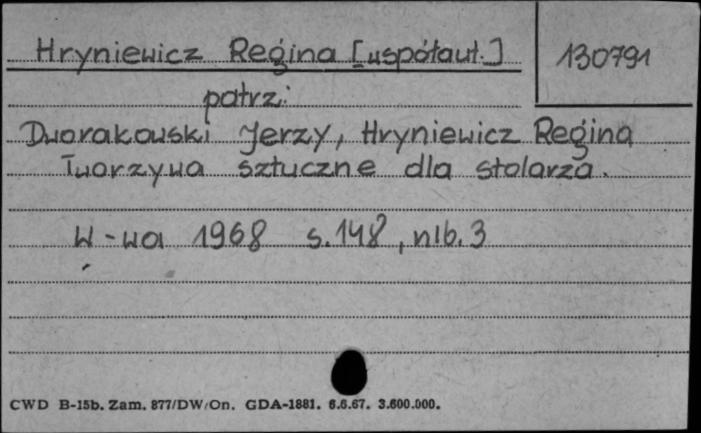 Hryniewicz Regina [współaut.]
130791
patrz:
Dworakowski Jerzy, Hryniewicz Regina
Tworzywa sztuczne dla stolarza.
W-wa 1968 s.148, nlb.3
CWD B-15b. Zam. 877/DW/On. GDA-1881. 6.6.67. 3.600.000.